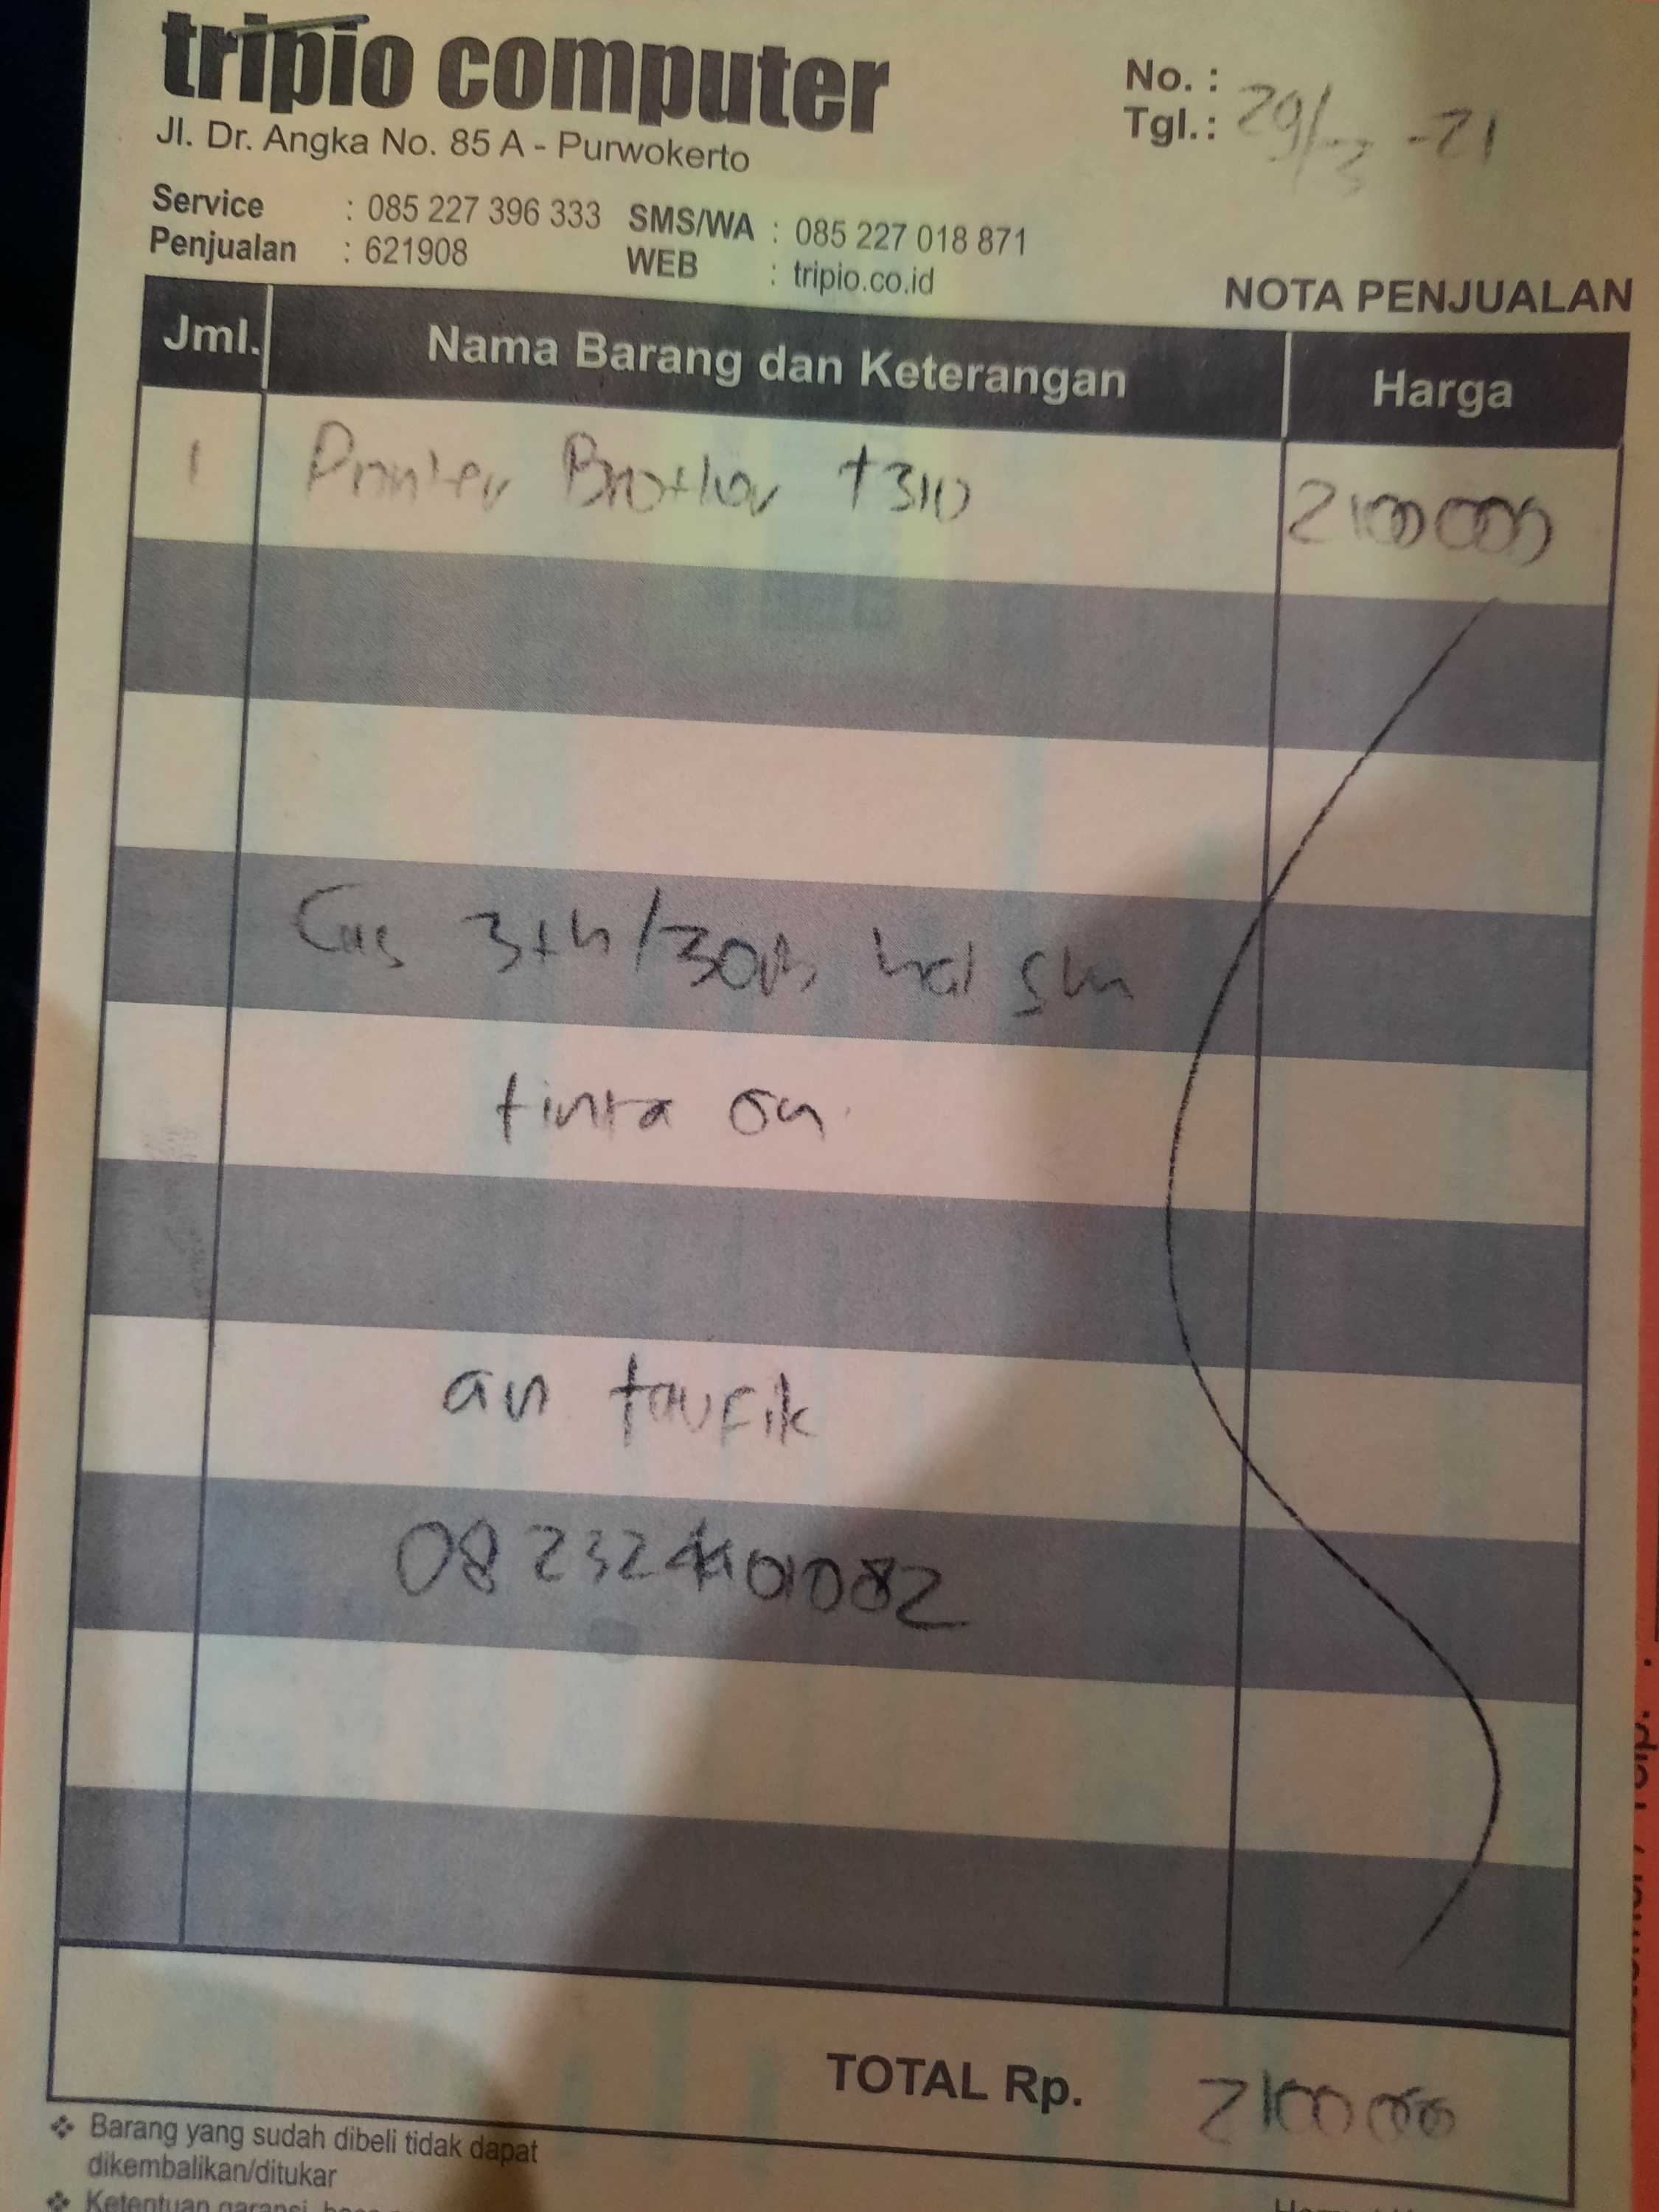 tripio computer
Jl. Dr. Angka No. 85 A - Purwokerto
No. :
Tgl. : 29/3 -21
Service : 085 227 396 333 SMS/WA : 085 227 018 871
Penjualan : 621908 WEB : tripio.co.id
NOTA PENJUALAN
Jml. Nama Barang dan Keterangan Harga
1 Printer Brother T310 2100000
3th/30rb hal
tinta
an taufik
TOTAL Rp. 2100000
❖ Barang yang sudah dibeli tidak dapat
dikembalikan/ditukar
❖ Ketentuan garansi